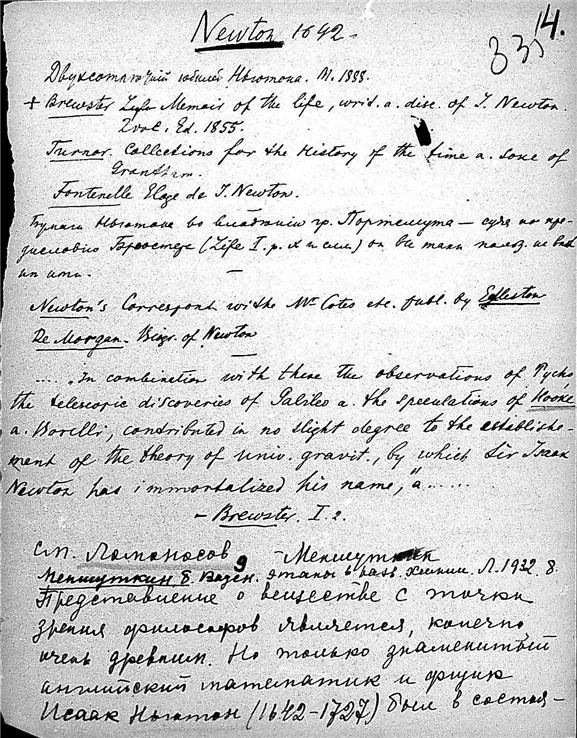 14.
335
Newton 1642 -
Двухсотлетний юбилей Ньютона. М. 1888.
+ Brewster Life Memoir of the life, writ. a. disc. of I. Newton.
2 vol. Ed. 1855.
Turnor. Collections for the History of the time a. Soke of
Grantham.
Fontenelle Eloge de I. Newton.
Бумаги Ньютона во владении гр. Портсмута — судя по пре-
дисловию Брюстера (Life I. p. X и след) он
им ими. —
Newton's Correspond with the Mr Cotes etc. publ. by Edleston
De Morgan. Biogr. of Newton
—
..... „In combination with these the observations of Tycho,
the telescopic discoveries of Galileo a. the speculations of Hooke
a. Borelli, contributed in no slight degree to the establishe-
ment of the theory of univ. gravit., by which Sir Isaac
Newton has immortalized his name," a......
- Brewster. I 2.
см. Ломоносов 9 - Меншуткин
Меншуткин Б. Важн. этапы в разв. химии. Л. 1932. 8.
Представление о веществе с точки
зрения философов является, конечно
очень древним. Но только знаменитый
английский математик и физик
Исаак Ньютон (1642-1727) был в состоя-